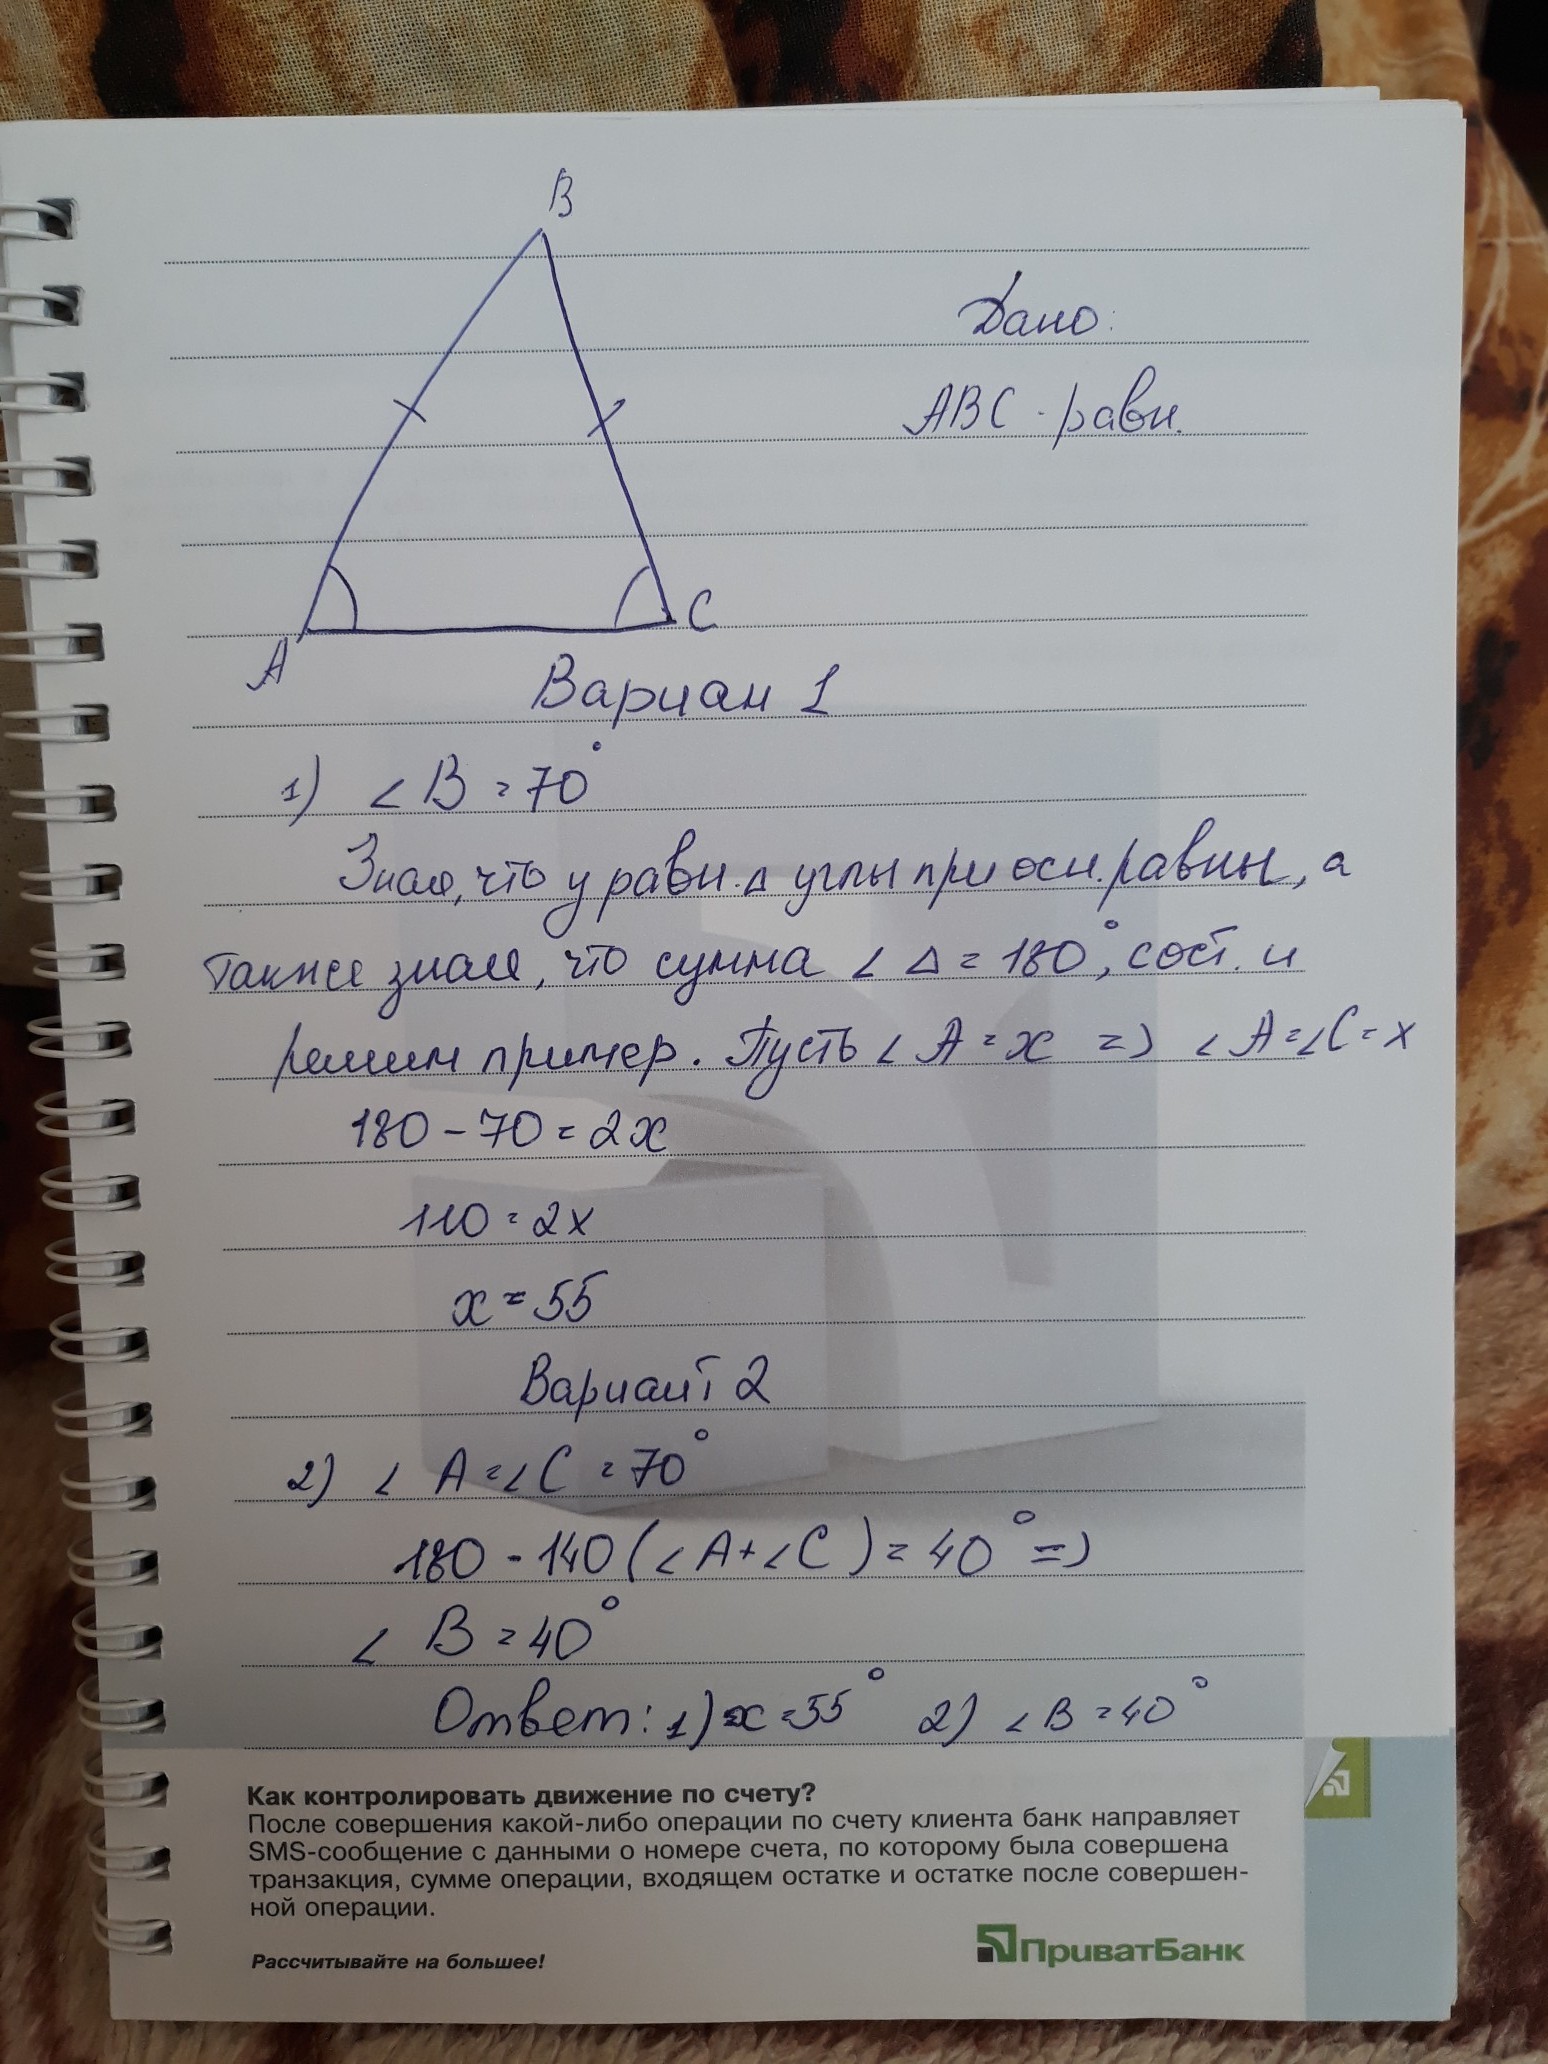 B
Дано:
ABC - равн.
A
C
Вариан 1
1) ∠B = 70°
Зная, что у равн. Δ углы при осн. равны, а
также зная, что сумма ∠ Δ = 180°, сост. и
решим пример. Пусть ∠A = x => ∠A = ∠C = x
180 - 70 = 2x
110 = 2x
x = 55
Вариант 2
2) ∠A = ∠C = 70°
180 - 140 (∠A + ∠C) = 40° =>
∠B = 40°
Ответ: 1) x = 55° 2) ∠B = 40°
Как контролировать движение по счету?
После совершения какой-либо операции по счету клиента банк направляет
SMS-сообщение с данными о номере счета, по которому была совершена
транзакция, сумме операции, входящем остатке и остатке после совершен-
ной операции.
Рассчитывайте на большее!
ПриватБанк